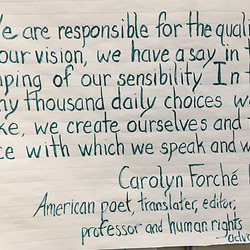 We are responsible for the quali
our vision, we have a say in
ping of our sensibility In
ny thousand daily choices w
ke, we create ourselves and
ce with which we speak and w
Carolyn Forché
American poet, translater, editor,
professor and human rights
advo